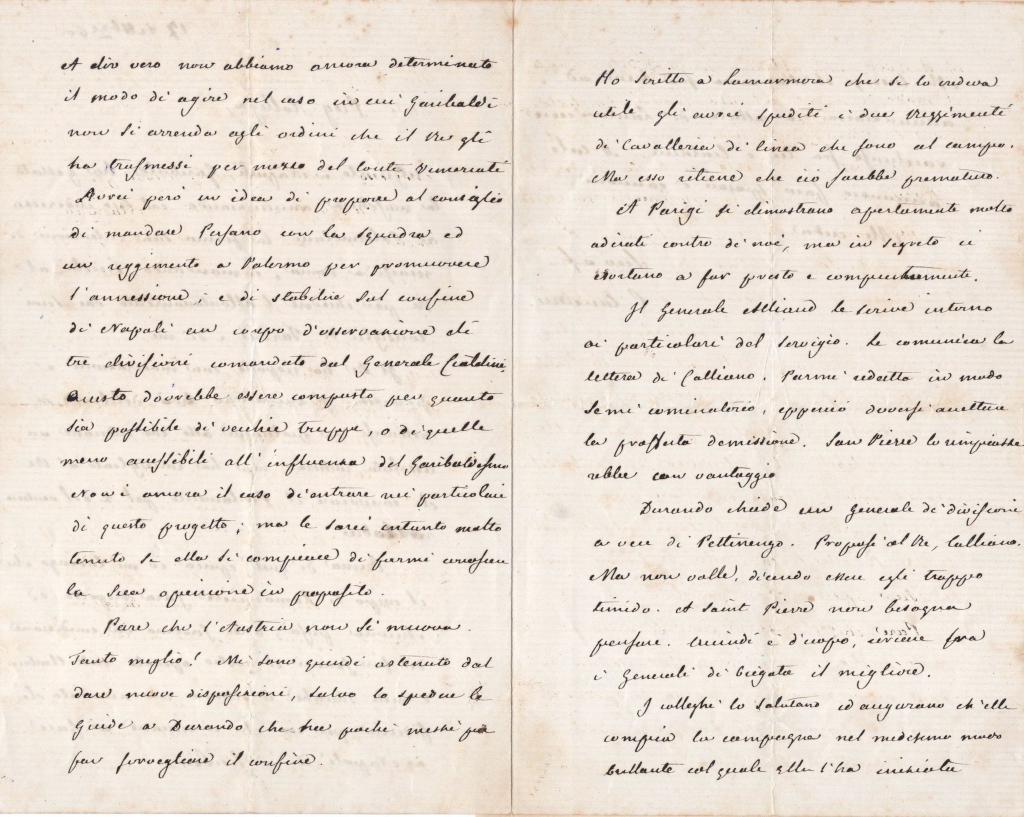 A dir vero non abbiamo ancora determinato
il modo di agire nel caso in cui Garibaldi
non si arrenda agli ordini che il Re gli
ha trasmessi per mezzo del Conte Vimercati
Avrei però in idea di proporre al consiglio
di mandare Persano con la squadra ed
un reggimento a Palermo per promuovere
l'annessione; e di stabilire sul confine
di Napoli un corpo d'osservazione di
tre divisioni comandato dal Generale Cialdini
Questo dovrebbe essere composto per quanto
sia possibile di vecchie truppe, o di quelle
meno accessibili all'influenza del Garibaldismo
Non è ancora il caso di entrare nei particolari
di questo progetto; ma le sarei intanto molto
tenuto se ella si compiace di farmi conoscere
la sua opinione in proposito.
Pare che l'Austria non si muova.
Tanto meglio! Mi sono quindi astenuto dal
dare nuove disposizioni, salvo lo spedire le
Guide a Durando che ha pochi mezzi per
far sorvegliare il confine.
Ho scritto a Lamarmora che se lo credeva
utile gli avrei spediti i due Reggimenti
di Cavalleria di linea che sono al campo.
Ma esso ritiene che ciò sarebbe prematuro.
A Parigi si dimostrano apertamente molto
adirati contro di noi, ma in segreto ci
esortano a far presto e compiutamente.
Il Generale le scrive intorno
ai particolari del servigio. Le comunica la
lettera di Calliano. Parmi redatta in modo
semi cominatorio, epperciò doversi accettare
la profferta demissione. San Pierre lo rimpiazze
rebbe con vantaggio
Durando chiede un generale di divisione
a vece di Pettinengo. Proposi al Re, Calliano.
Ma non volle, dicendo essere egli troppo
timido. A Saint Pierre non bisogna
pensare. Quindi è d'uopo, cercare fra
i Generali di brigata il migliore.
I colleghi lo salutano ed augurano ch'ella
compia la campagna nel medesimo modo
brillante col quale ella l'ha iniziata